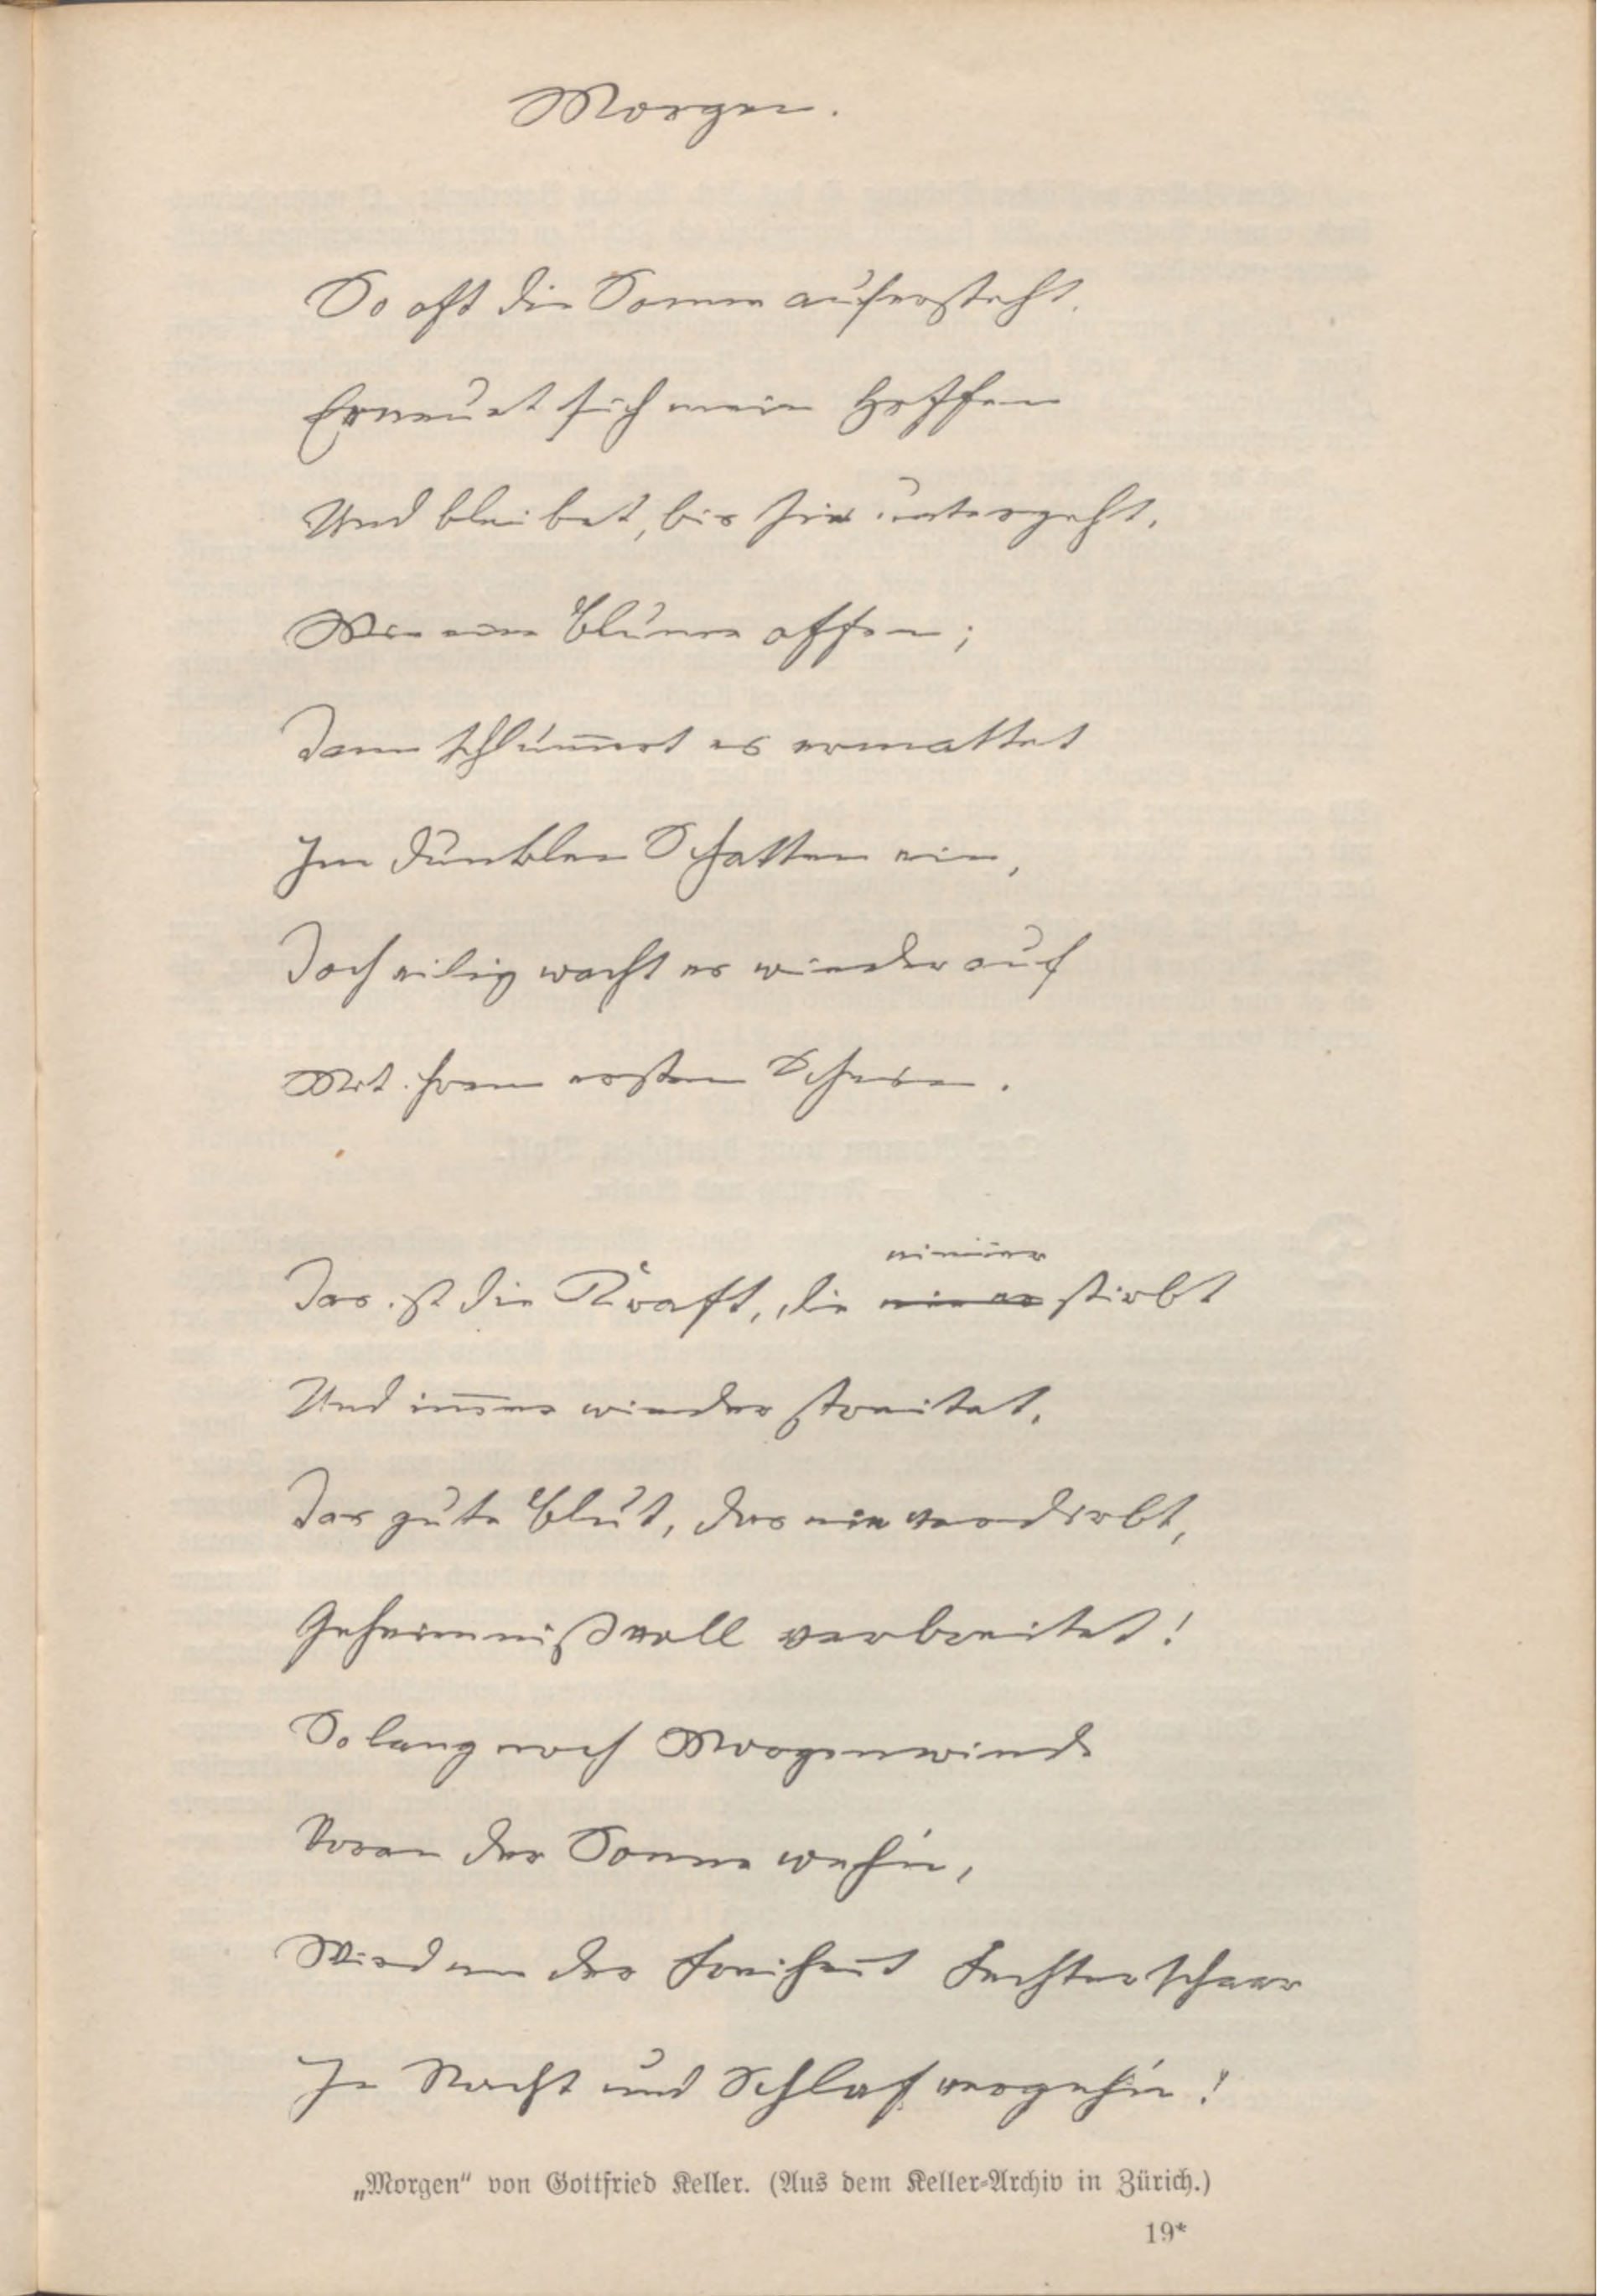 Morgen.
So oft die Sonne aufersteht,
Erneuet sich mein Hoffen
Und bleibet, bis sie untergeht,
Wie eine Blume offen;
Dann schlum̄ert es ermattet
Im dunklen Schatten ein,
Doch eilig wacht es wieder auf
Mit ihrem ersten Schein.
nim̄er
Das ist die Kraft, die stirbt
Und im̄er wieder streitet,
Das gute Blut, das nie verdirbt,
Geheimnißvoll verbreitet!
So lang noch Morgenwinde
Voran der Sonne weh'n,
Wird nie der Freiheit Fechterschaar
In Nacht und Schlaf vergeh'n!
„Morgen“ von Gottfried Keller. (Aus dem Keller-Archiv in Zürich.)
19*